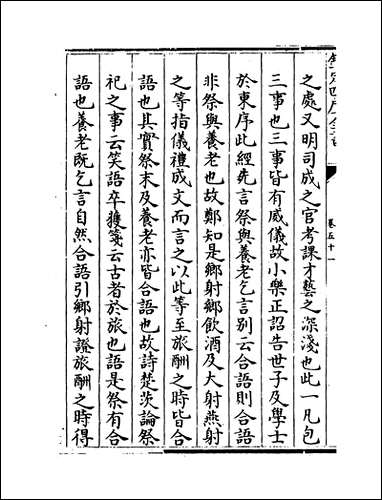 之處又明司成之官考課才藝之深淺也此一凡包
三事也三事皆有威儀故小樂正詔告世子及學士
於東序此經先言祭與養老乞言別云合語則合語
非祭與養老也故鄭知是鄉射鄉飲酒及大射燕射
之等指儀禮成文而言之以此等至旅酬之時皆合
語也其實祭末及養老亦皆合語也故詩楚茨論祭
祀之事云笑語卒獲箋云古者於旅也語是祭有合
語也養老既乞言自然合語引鄉射證旅酬之時得
卷五十一